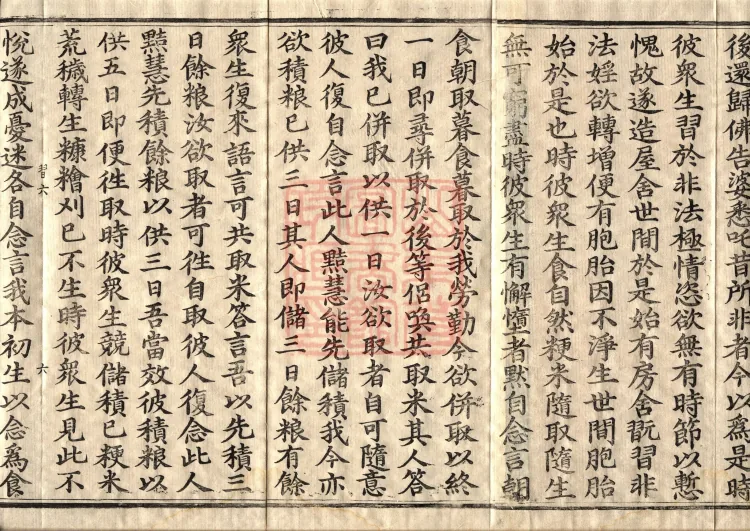 後還歸佛告婆悉吒昔所非者今以為是時
彼衆生習於非法極情恣欲無有時節以慙
愧故遂造屋舍世間於是始有房舍翫習非
法婬欲轉增便有胞胎因不淨生世間胞胎
始於是也時彼衆生食自然粳米隨取隨生
無可窮盡時彼衆生有懈憜者默自念言朝
食朝取暮食暮取於我勞勤今欲併取以終
一日即尋併取於後等侶喚共取米其人答
曰我已併取以供一日汝欲取者自可隨意
彼人復自念言此人黠慧能先儲積我今亦
欲積粮已供三日其人即儲三日餘粮有餘
衆生復來語言可共取米答言吾以先積三
日餘粮汝欲取者可往自取彼人復念此人
黠慧先積餘粮以供三日吾當效彼積粮以
供五日即便往取時彼衆生競儲積已粳米
荒穢轉生糠糩刈已不生時彼衆生見此不
習六 六
悅遂成憂迷各自念言我本初生以念為食